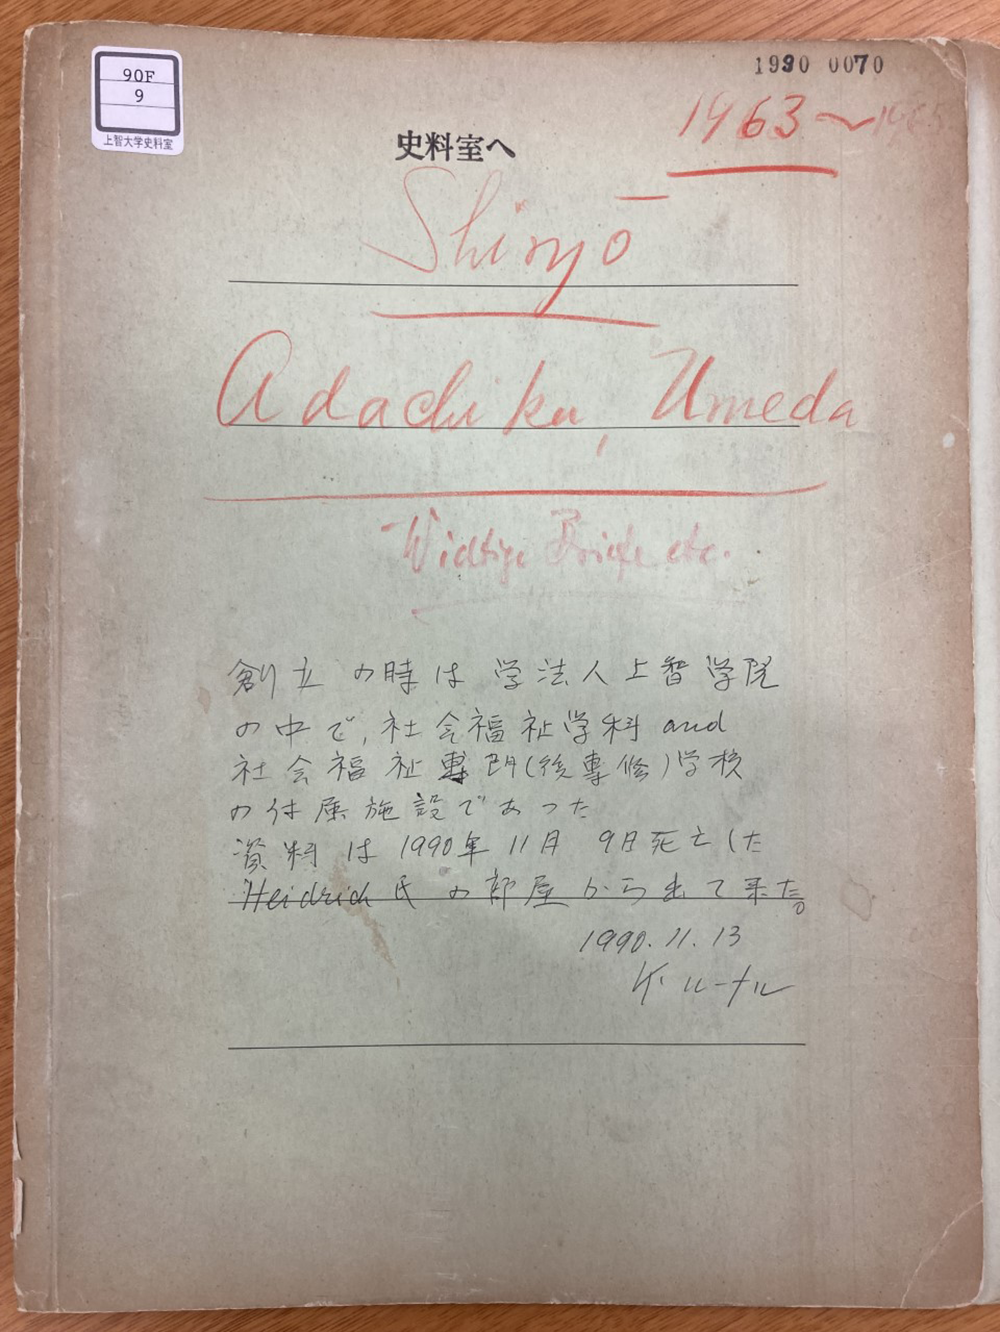 90F
9
上智大学史料室
1990 0070
1963〜
史料室へ
Shiryō
Adachiku, Umeda
Wichtige Briefe etc.
創立の時は学法人上智学院
の中で,社会福祉学科 and
社会福祉専門(後専修)学校
の付属施設であった
資料は1990年11月9日死亡した
Heidrich氏の部屋から出て来た。
1990.11.13
ゲ.ルーナル